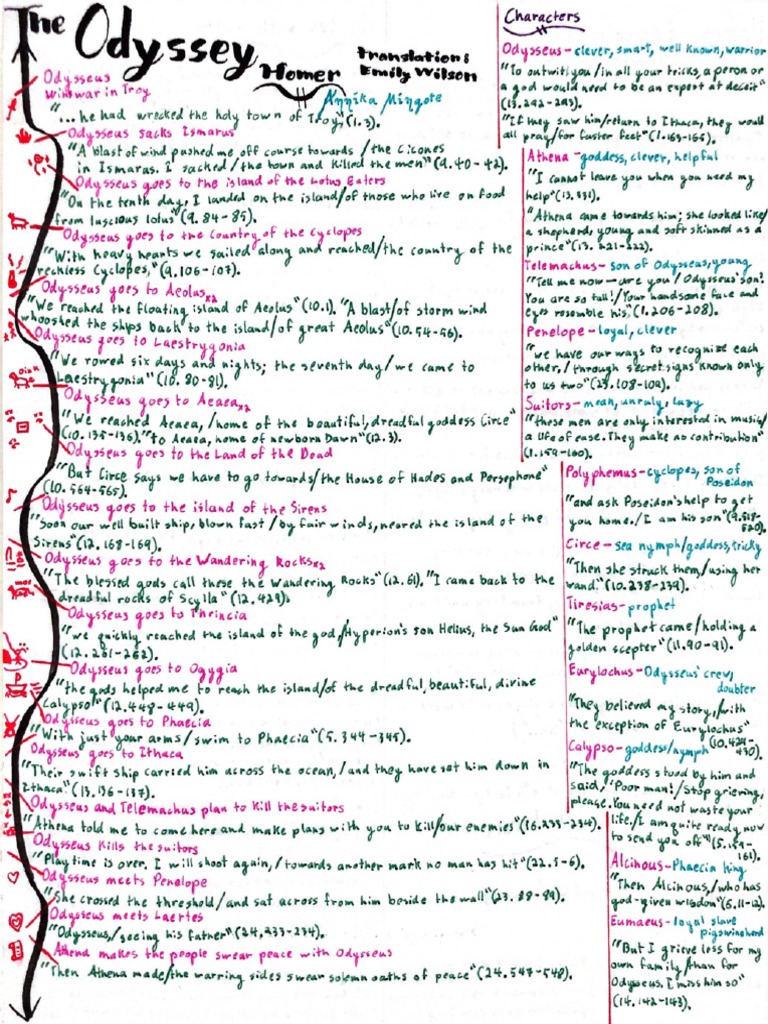 The Odyssey
Homer
Translation:
Emily Wilson
Annika Mingote
Odysseus
wins war in Troy
"...he had wrecked the holy town of Troy," (1.3).
Odysseus sacks Ismarus
"A blast of wind pushed me off course towards/the Cicones
in Ismarus. I sacked/the town and killed the men" (9.40-42).
Odysseus goes to the island of the Lotus Eaters
"On the tenth day, I landed on the island/of those who live on food
from luscious lotus" (9.84-85).
Odysseus goes to the Country of the Cyclopes
"With heavy hearts we sailed along and reached/the country of the
reckless Cyclopes," (9.106-107).
Odysseus goes to Aeolus x2
"We reached the floating island of Aeolus" (10.1). "A blast/of storm wind
whooshed the ships back to the island/of great Aeolus" (10.54-56).
Odysseus goes to Laestrygonia
"We rowed six days and nights; the seventh day/we came to
Laestrygonia" (10.80-81).
Oink
Odysseus goes to Aeaea x2
"We reached Aeaea,/home of the beautiful, dreadful goddess Circe"
(10.135-136). "to Aeaea, home of newborn Dawn" (12.3).
Odysseus goes to the Land of the Dead
"But Circe says we have to go towards/the House of Hades and Persephone"
(10.564-565).
Odysseus goes to the island of the Sirens
"Soon our well built ship, blown fast/by fair winds, neared the island of the
Sirens" (12.168-169).
Odysseus goes to the Wandering Rocks x2
"The blessed gods call these the Wandering Rocks" (12.61). "I came back to the
dreadful rocks of Scylla" (12.429).
Odysseus goes to Thrincia
"we quickly reached the island of the god,/Hyperion's son Helius, the Sun God"
(12.261-262).
Odysseus goes to Ogygia
"the gods helped me to reach the island/of the dreadful, beautiful, divine
Calypso" (12.448-449).
Odysseus goes to Phaecia
"With just your arms/swim to Phaecia" (5.344-345).
Odysseus goes to Ithaca
"Their swift ship carried him across the ocean,/and they have set him down in
Ithaca" (13.136-137).
Odysseus and Telemachus plan to kill the suitors
"Athena told me to come here and make plans with you to kill/our enemies" (16.233-234).
Odysseus kills the suitors
"Playtime is over. I will shoot again,/towards another mark no man has hit" (22.5-6).
Odysseus meets Penelope
"She crossed the threshold/and sat across from him beside the wall" (23.88-89).
Odysseus meets Laertes
"Odysseus,/seeing his father" (24.233-234).
Athena makes the people swear peace with Odysseus
"Then Athena made/the warring sides swear solemn oaths of peace" (24.547-548).
Characters
Odysseus - clever, smart, well known, warrior
"To outwit you/in all your tricks, a person or
a god would need to be an expert at deceit"
(13.292-293).
"If they saw him/return to Ithaca, they would
all pray/for faster feet" (1.163-165).
Athena - goddess, clever, helpful
"I cannot leave you when you need my
help" (13.331).
"Athena came towards him; she looked like/
a shepherd, young and soft skinned as a
prince" (13.221-222).
Telemachus - son of Odysseus, young
"Tell me now—are you/Odysseus' son?
You are so tall!/Your handsome face and
eyes resemble his," (1.206-208).
Penelope - loyal, clever
"we have our ways to recognize each
other,/through secret signs known only
to us two" (23.108-109).
Suitors - mean, unruly, lazy
"these men are only interested in music/
a life of ease. They make no contribution"
(1.159-160).
Polyphemus - cyclopes, son of
Poseidon
"and ask Poseidon's help to get
you home./I am his son" (9.518-
520).
Circe - sea nymph/goddess, tricky
"Then she struck them/using her
wand," (10.238-239).
Tiresias - prophet
"The prophet came/holding a
golden scepter" (11.90-91).
Eurylochus - Odysseus' crew,
doubter
"They believed my story,/with
the exception of Eurylochus"
(10.429-430).
Calypso - goddess/nymph
"The goddess stood by him and
said,/'Poor man!/Stop grieving,
please. You need not waste your
life./I am quite ready now
to send you off'" (5.159-
161).
Alcinous - Phaecia king
"Then Alcinous,/who has
god-given wisdom" (6.11-12).
Eumaeus - loyal slave
pig swineherd
"But I grieve less for my
own family/than for
Odysseus. I miss him so"
(14.142-143).